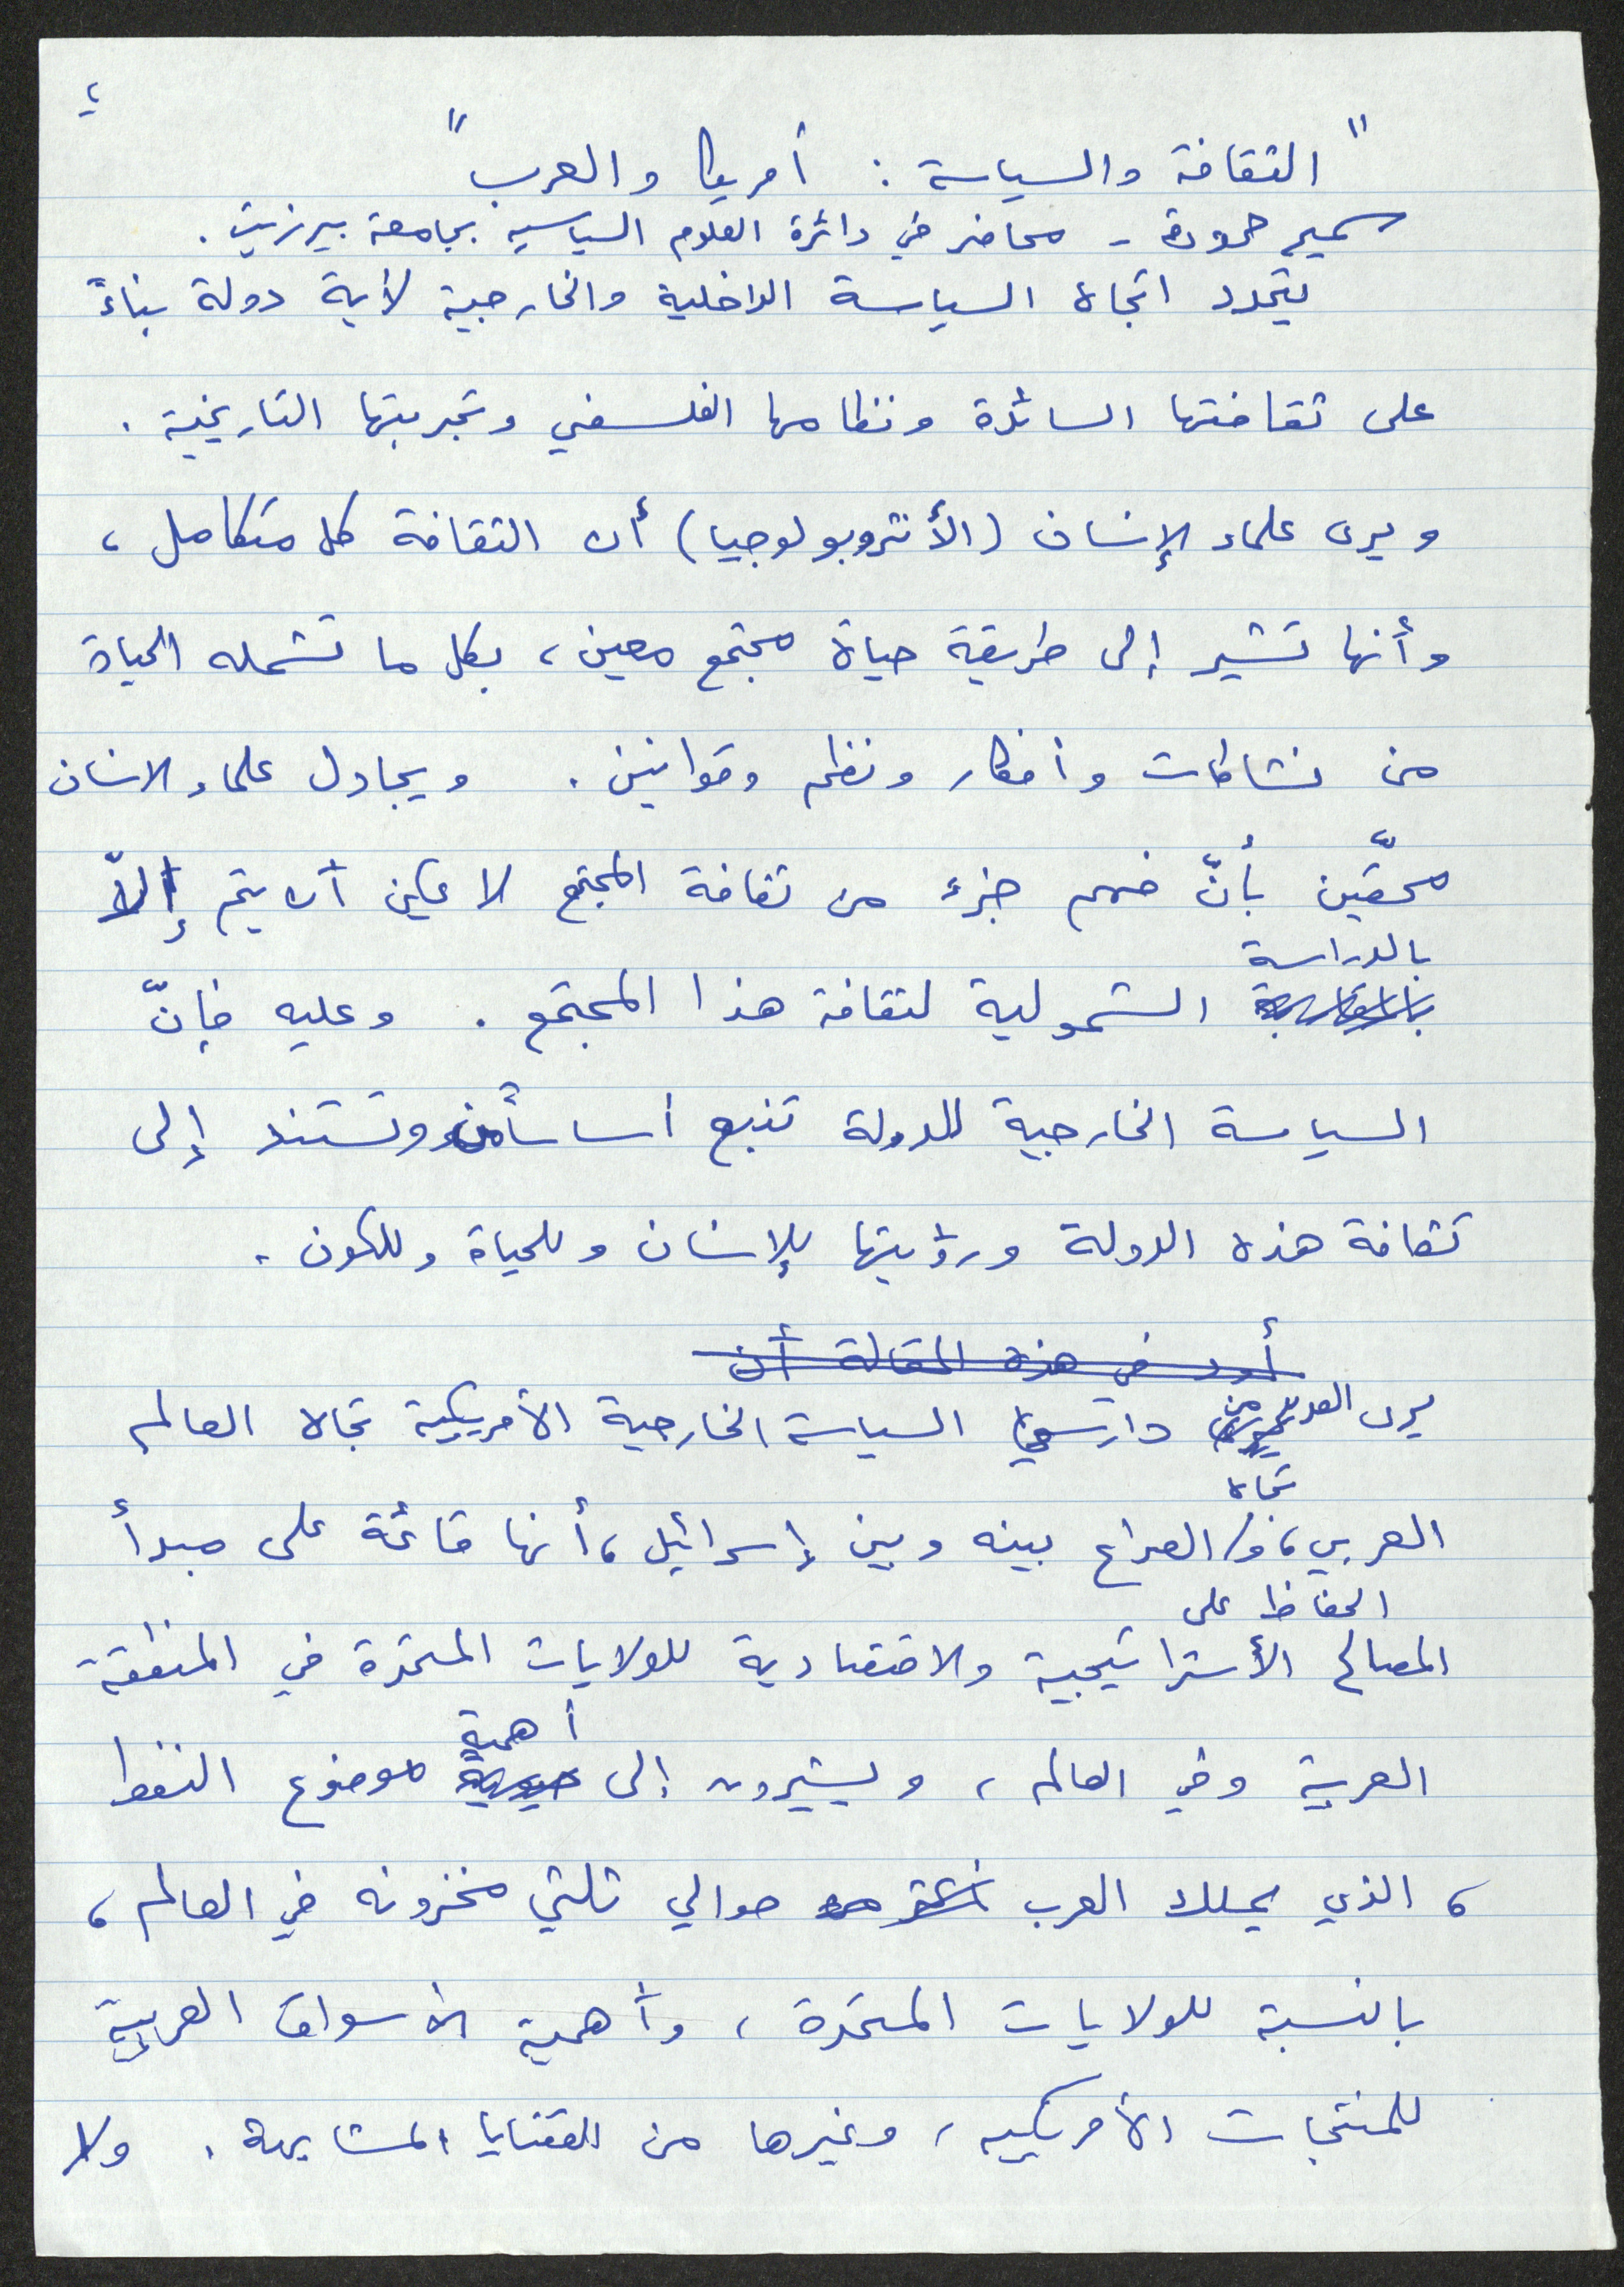 "الثقافة والسياسة : أمريكا والعرب"
سميح حمودة - محاضر في دائرة العلوم السياسية بجامعة بيرزيت .
يتحدد اتجاه السياسة الداخلية والخارجية لأية دولة بناءً
على ثقافتها السائدة ونظامها الفلسفي وتجربتها التاريخية .
ويرى علماء الإنسان (الأنثروبولوجيا) أن الثقافة كل متكامل ،
وأنها تشير إلى طريقة حياة مجتمع معين ، بكل ما تشمله الحياة
من نشاطات وأفكار ونظم وقوانين . ويجادل علماء الانسان
محقّين بأنّ فهم جزء من ثقافة المجتمع لا يمكن أن يتم إلاّ
بالدراسة
الشمولية لثقافة هذا المجتمع . وعليه فإنّ
السياسة الخارجية للدولة تنبع أساساً من وتستند إلى
ثقافة هذه الدولة ورؤيتها للإنسان وللحياة وللكون .
أود في هذه المقالة أن
يرى العديد من دارسي السياسة الخارجية الأمريكية تجاه العالم
تجاه
العربي، و الصراع بينه وبين إسرائيل ، أنها قائمة على مبدأ
الحفاظ على
المصالح الأستراتيجية والاقتصادية للولايات المتحدة في المنطقة
أهمية
العربية وفي العالم ، ويشيرون إلى حيوية موضوع النفط
، الذي يملك العرب حوالي ثلثي مخزونه في العالم ،
بالنسبة للولايات المتحدة ، وأهمية الأسواق العربية
للمنتجات الأمريكيه ، وغيرها من القضايا المشابهة . ولا